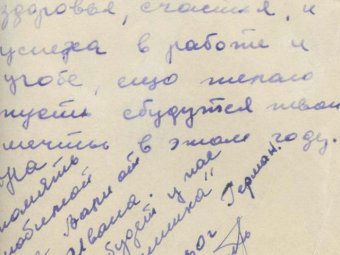 здоровья, счастья, и
успеха в работе и
учобе, ещо желаю
пусть сбудутся твои
мечты в этом году.
память
любимой
Вали от
Ивана.
будет у нас
Герман.